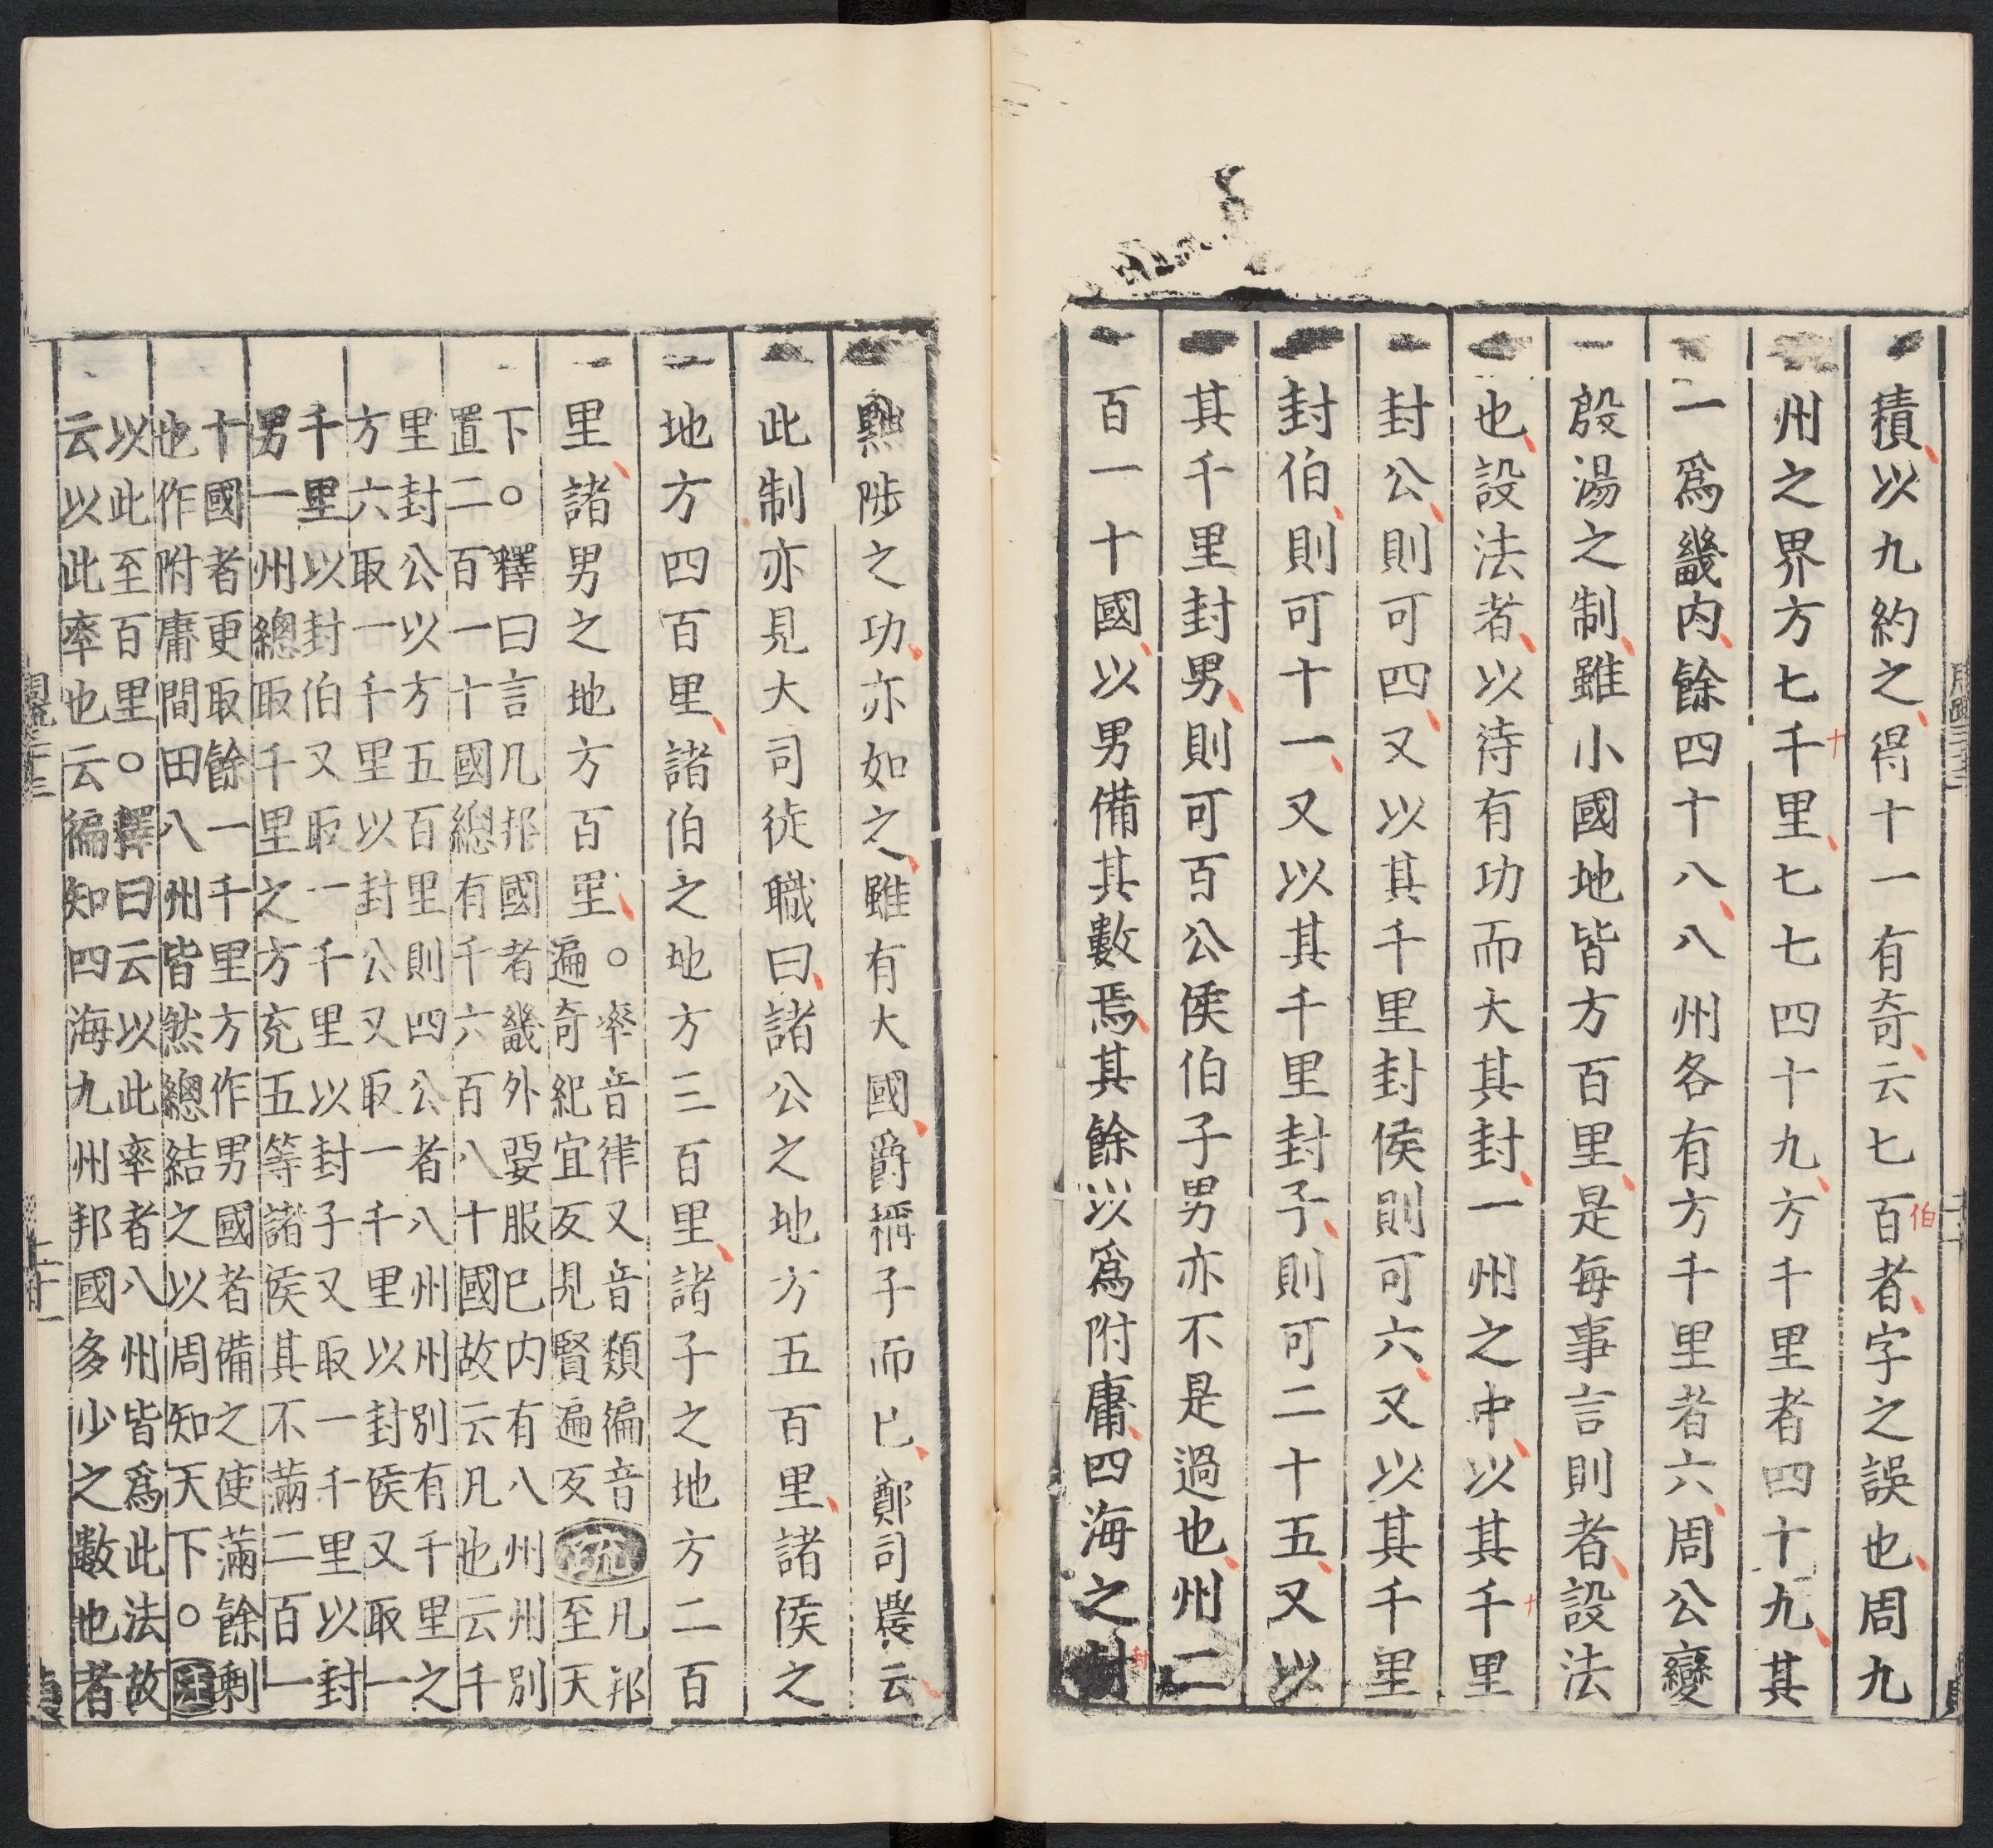 積以九約之得十一有奇云七百者字之誤也周九
州之界方七千里七七四十九方千里者四十九其
一爲畿内餘四十八八州各有方千里者六周公變
殷湯之制雖小國地皆方百里是每事言則者設法
也設法者以待有功而大其封一州之中以其千里
封公則可四又以其千里封侯則可六又以其千里
封伯則可十一又以其千里封子則可二十五又以
其千里封男則可百公侯伯子男亦不是過也州二
百一十國以男備其數焉其餘以爲附庸四海之封
黜陟之功亦如之雖有大國爵稱子而已鄭司農云
此制亦見大司徒職曰諸公之地方五百里諸侯之
地方四百里諸伯之地方三百里諸子之地方二百
里諸男之地方百里○
率音律又音類徧音
遍奇紀宜反見賢遍反
疏
凡邦
至天
下○釋曰言凡邦國者畿外要服已内有八州州別
置二百一十國總有千六百八十國故云凡也云千
里封公以方五百里則四公者八州州別有千里之
方六取一千里以封公又取一千里以封侯又取一
千里以封伯又取一千里以封子又取一千里以封
男一州總取千里之方充五等諸侯其不滿二百一
十國者更取餘一千里方作男國者備之使滿餘剩
也作附庸間田八州皆然總結之以周知天下○注
以此至百里○釋曰云以此率者八州皆爲此法故
云以此率也云徧知四海九州邦國多少之數也者
十
伯
十
封